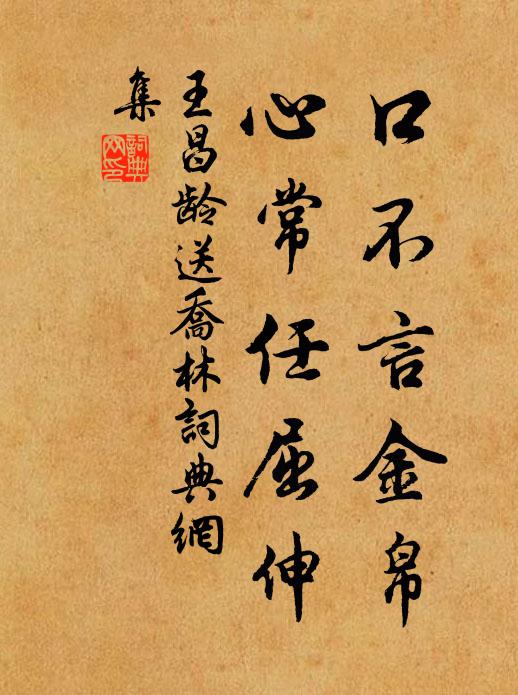 口不言金帛
心常任屈伸
王昌龄送喬林詞典網
集
詞典网印